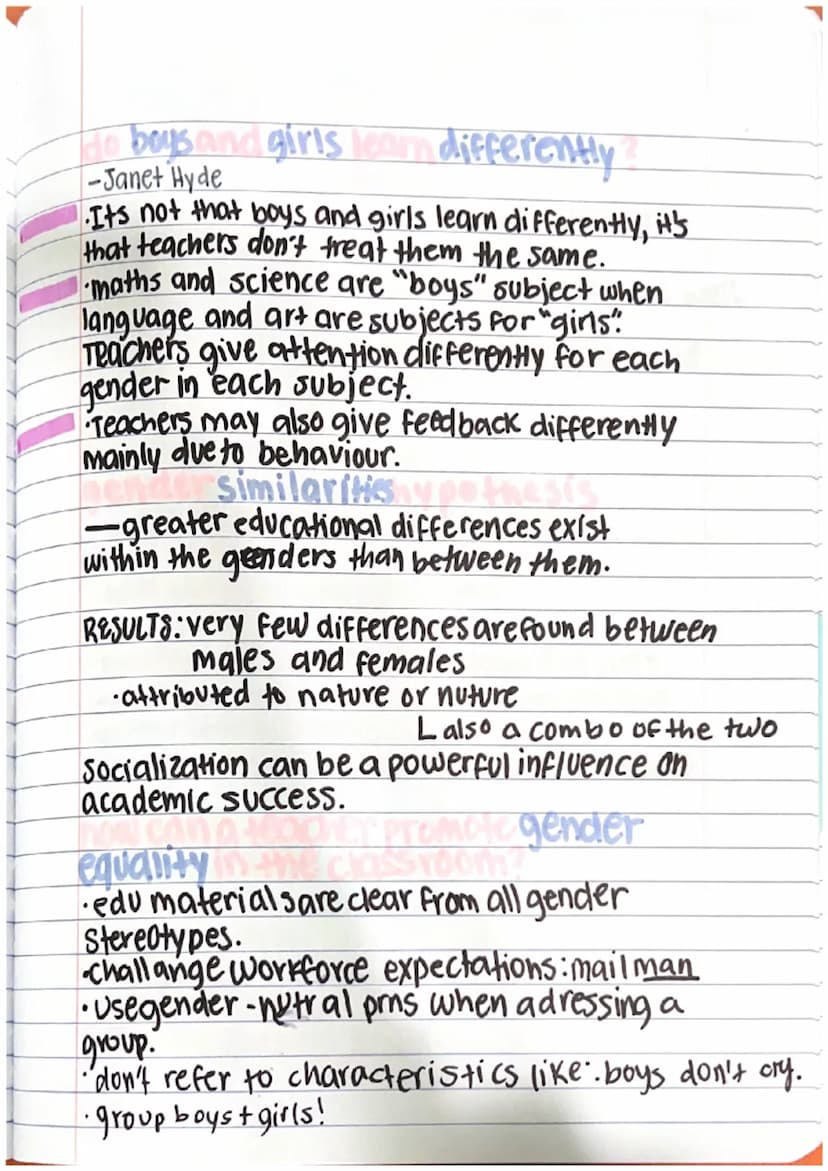 do boys and girls learn differently?
-Janet Hyde
·Its not that boys and girls learn differently, it's
that teachers don't treat them the same.
·maths and science are "boys" subject when
language and art are subjects for "girls".
Teachers give attention differently for each
gender in each subject.
·Teachers may also give feedback differently
mainly due to behaviour.
gender similarities hypothesis
—greater educational differences exist
within the genders than between them.
RESULTS: very few differences are found between
males and females
·attributed to nature or nuture
L also a combo of the two
Socialization can be a powerful influence on
academic success.
how can a teacher promote gender
equality in the classroom?
·edu materials are clear from all gender
stereotypes.
·challange workforce expectations: mailman
·use gender-nutral prns when adressing a
group.
·don't refer to characteristics like: boys don't cry.
·group boys + girls!